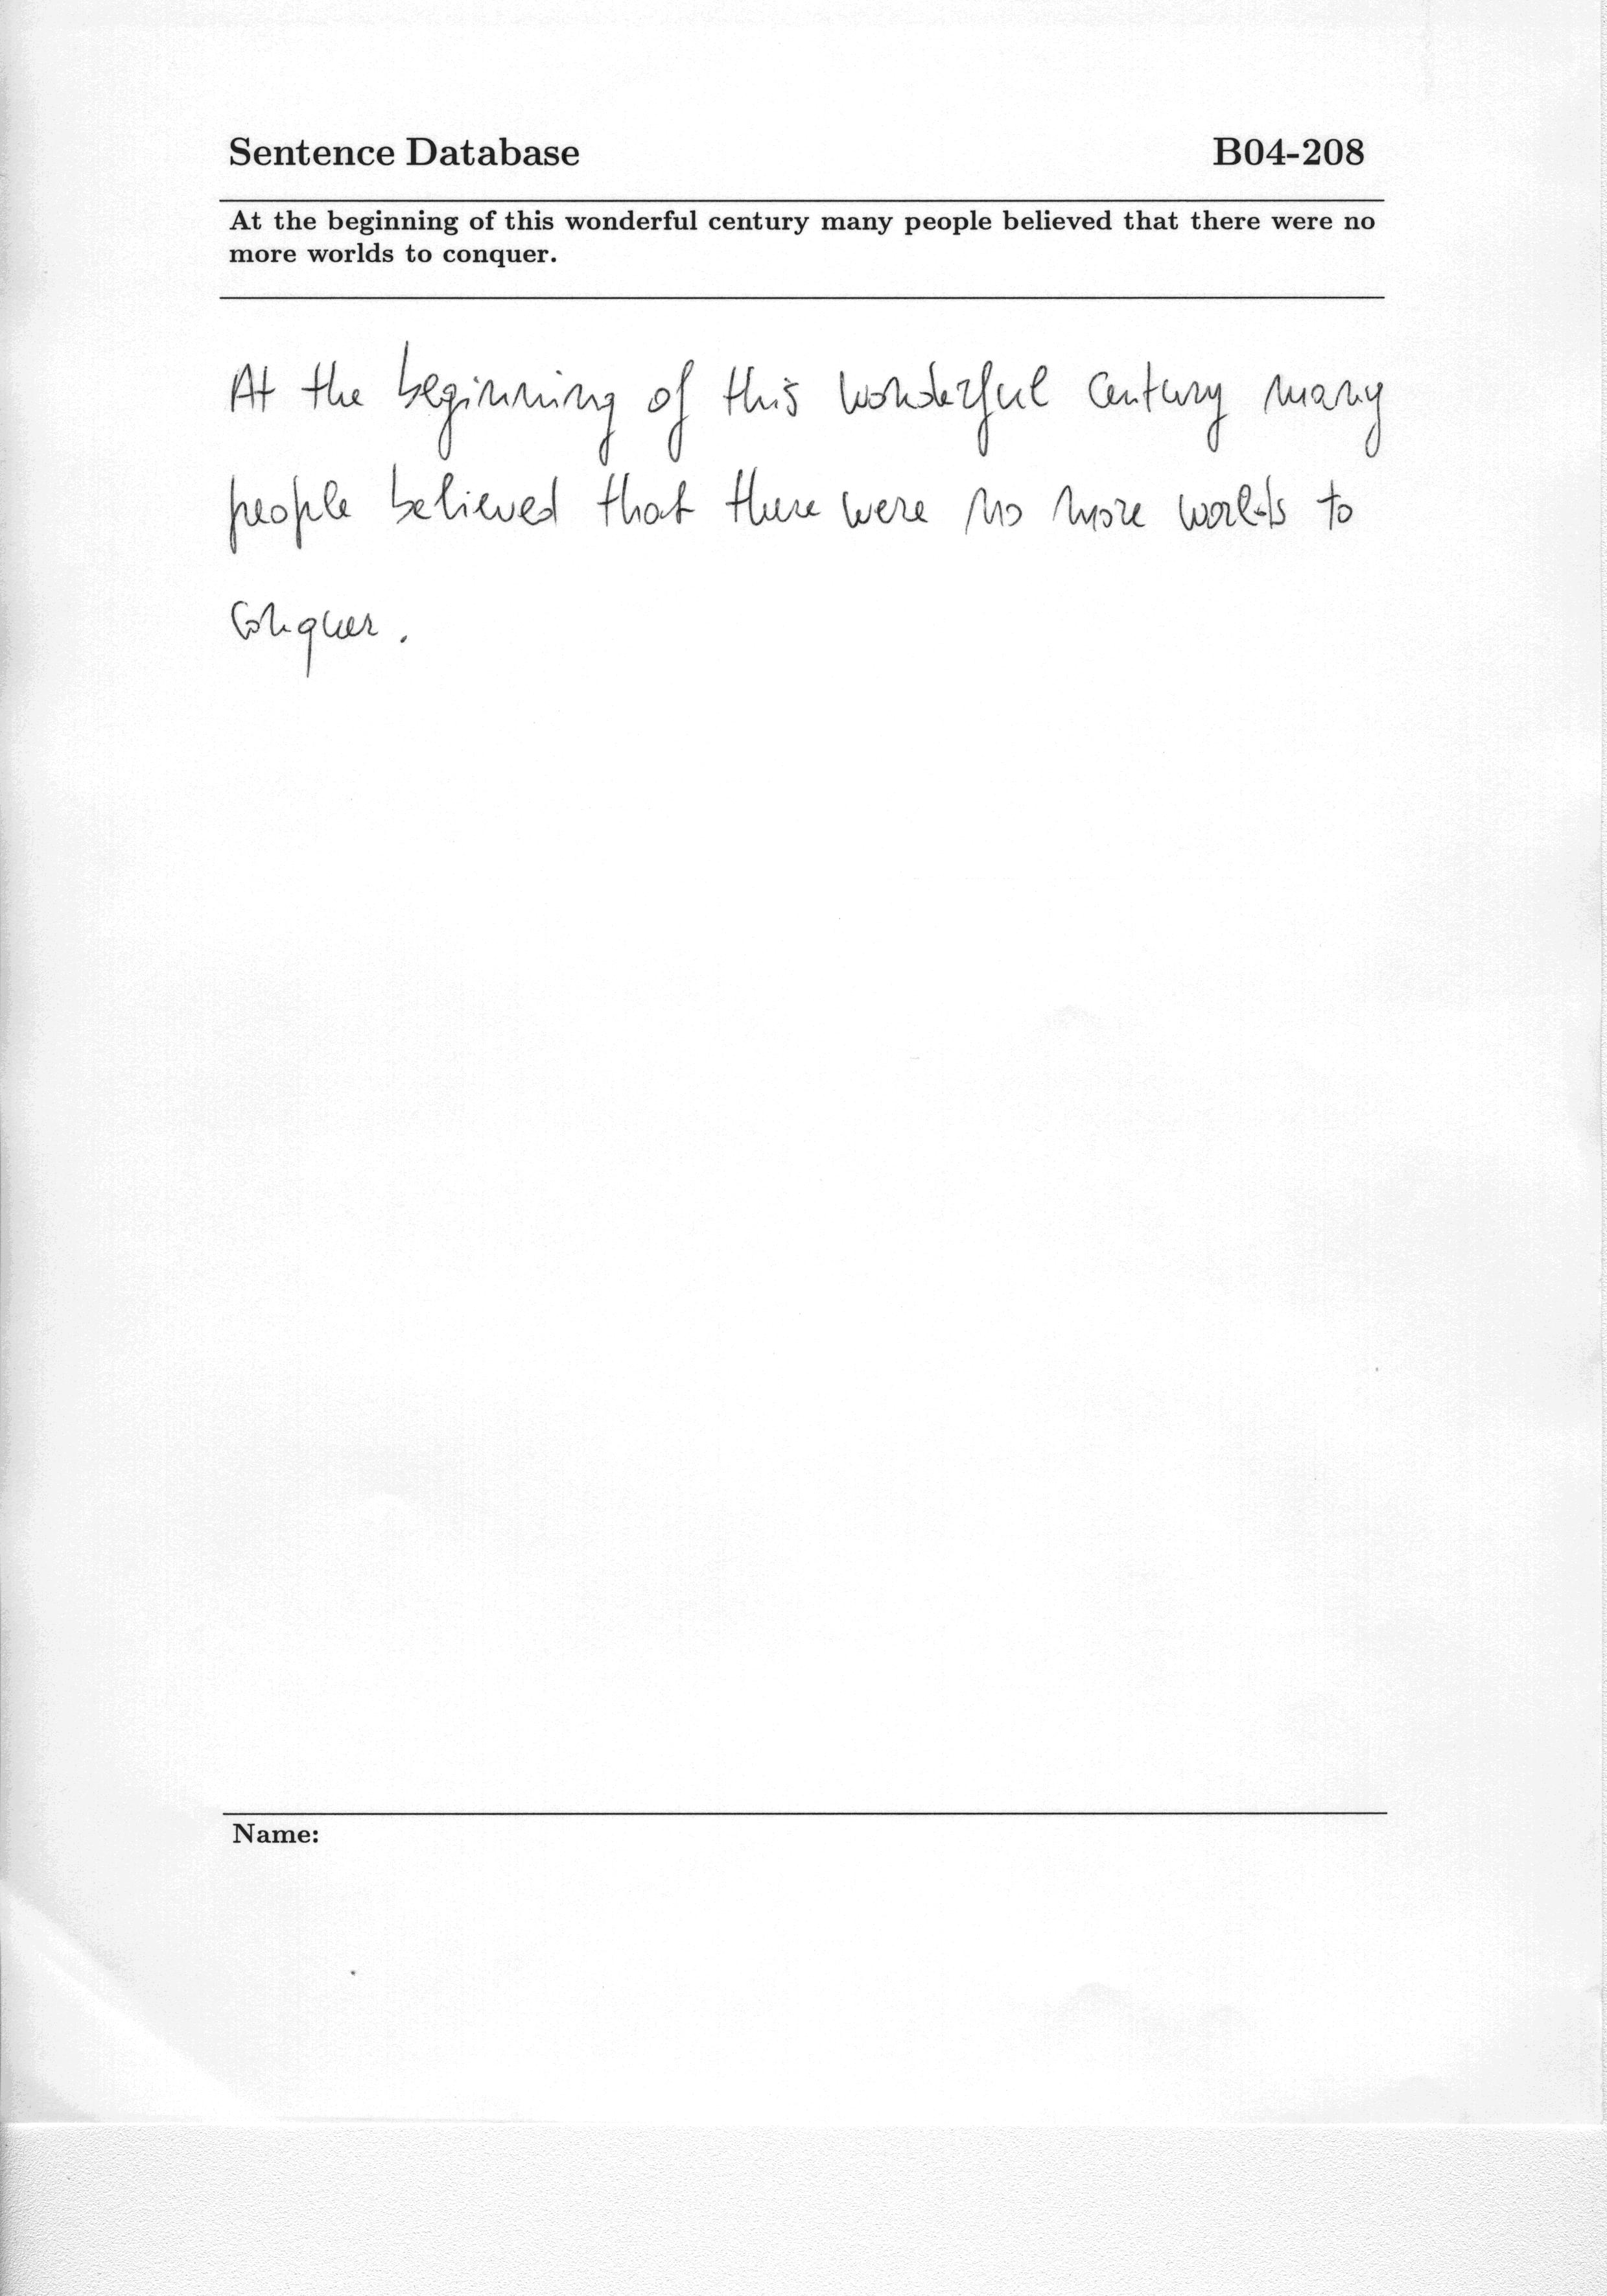 Sentence Database B04-208
At the beginning of this wonderful century many people believed that there were no
more worlds to conquer.
At the beginning of this wonderful century many
people believed that there were no more worlds to
conquer.
Name: